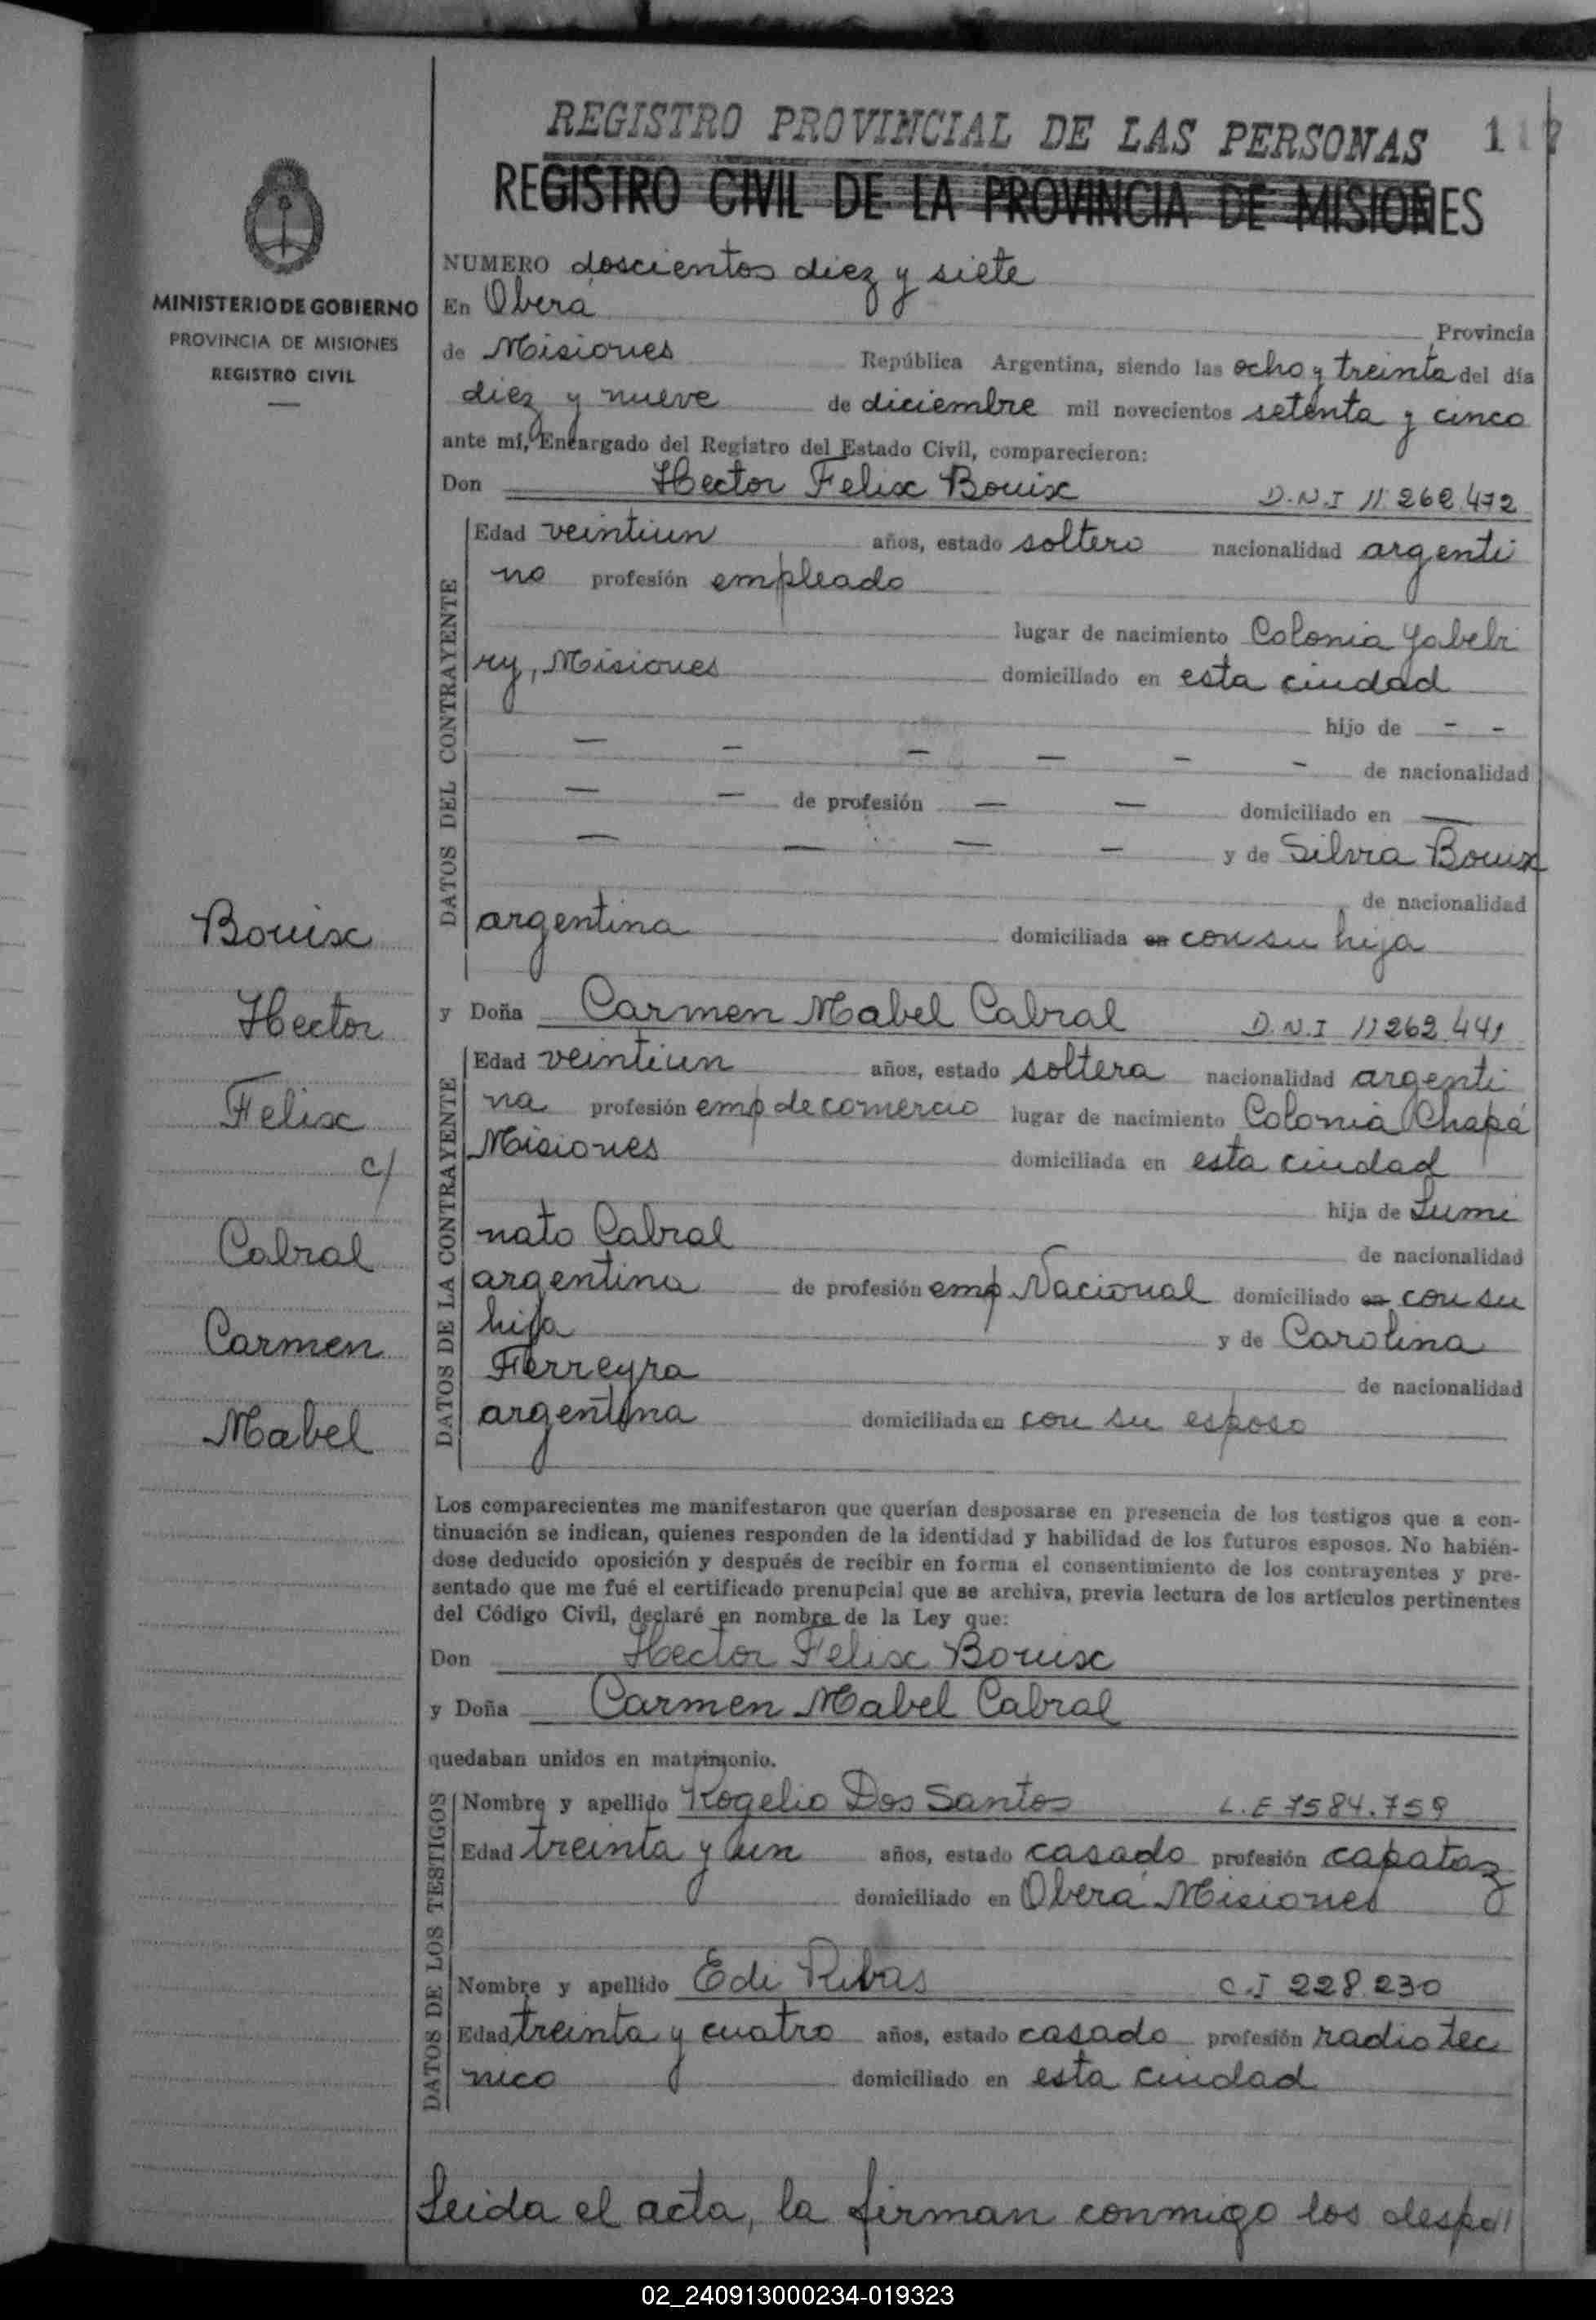 REGISTRO PROVINCIAL DE LAS PERSONAS
REGISTRO CIVIL DE LA PROVINCIA DE MISIONES
MINISTERIO DE GOBIERNO
PROVINCIA DE MISIONES
REGISTRO CIVIL
NUMERO doscientos diez y siete
En Oberá Provincia
de Misiones República Argentina, siendo las ocho y treinta del día
diez y nueve de diciembre mil novecientos setenta y cinco
ante mí, Encargado del Registro del Estado Civil, comparecieron:
Don Hector Felix Bouix D.N.I 11 262.472
DATOS DEL CONTRAYENTE
Edad veintiun años, estado soltero nacionalidad argenti
no profesión empleado
lugar de nacimiento Colonia Yabebi
ry, Misiones domiciliado en esta ciudad
hijo de - -
— — — — — - de nacionalidad
— — de profesión — — domiciliado en —
— — — — y de Silvia Bouix
de nacionalidad
argentina domiciliada en con su hija
y Doña Carmen Mabel Cabral D.N.I 11262.441
DATOS DE LA CONTRAYENTE
Edad veintiun años, estado soltera nacionalidad argenti
na profesión emp de comercio lugar de nacimiento Colonia Chapá
Misiones domiciliada en esta ciudad
hija de Lumi
nato Cabral de nacionalidad
argentina de profesión emp Nacional domiciliado en con su
hija y de Carolina
Ferreyra de nacionalidad
argentina domiciliada en con su esposo
Bouix
Hector
Felix
c/
Cabral
Carmen
Mabel
Los comparecientes me manifestaron que querían desposarse en presencia de los testigos que a con-
tinuación se indican, quienes responden de la identidad y habilidad de los futuros esposos. No habién-
dose deducido oposición y después de recibir en forma el consentimiento de los contrayentes y pre-
sentado que me fué el certificado prenupcial que se archiva, previa lectura de los artículos pertinentes
del Código Civil, declaré en nombre de la Ley que:
Don Hector Felix Bouix
y Doña Carmen Mabel Cabral
quedaban unidos en matrimonio.
DATOS DE LOS TESTIGOS
Nombre y apellido Rogelio Dos Santos L.E 7584.759
Edad treinta y un años, estado casado profesión capataz
domiciliado en Oberá Misiones
Nombre y apellido Edi Ribas C.I 228.230
Edad treinta y cuatro años, estado casado profesión radio tec
nico domiciliado en esta ciudad
Leida el acta, la firman conmigo los despo//
02_240913000234-019323